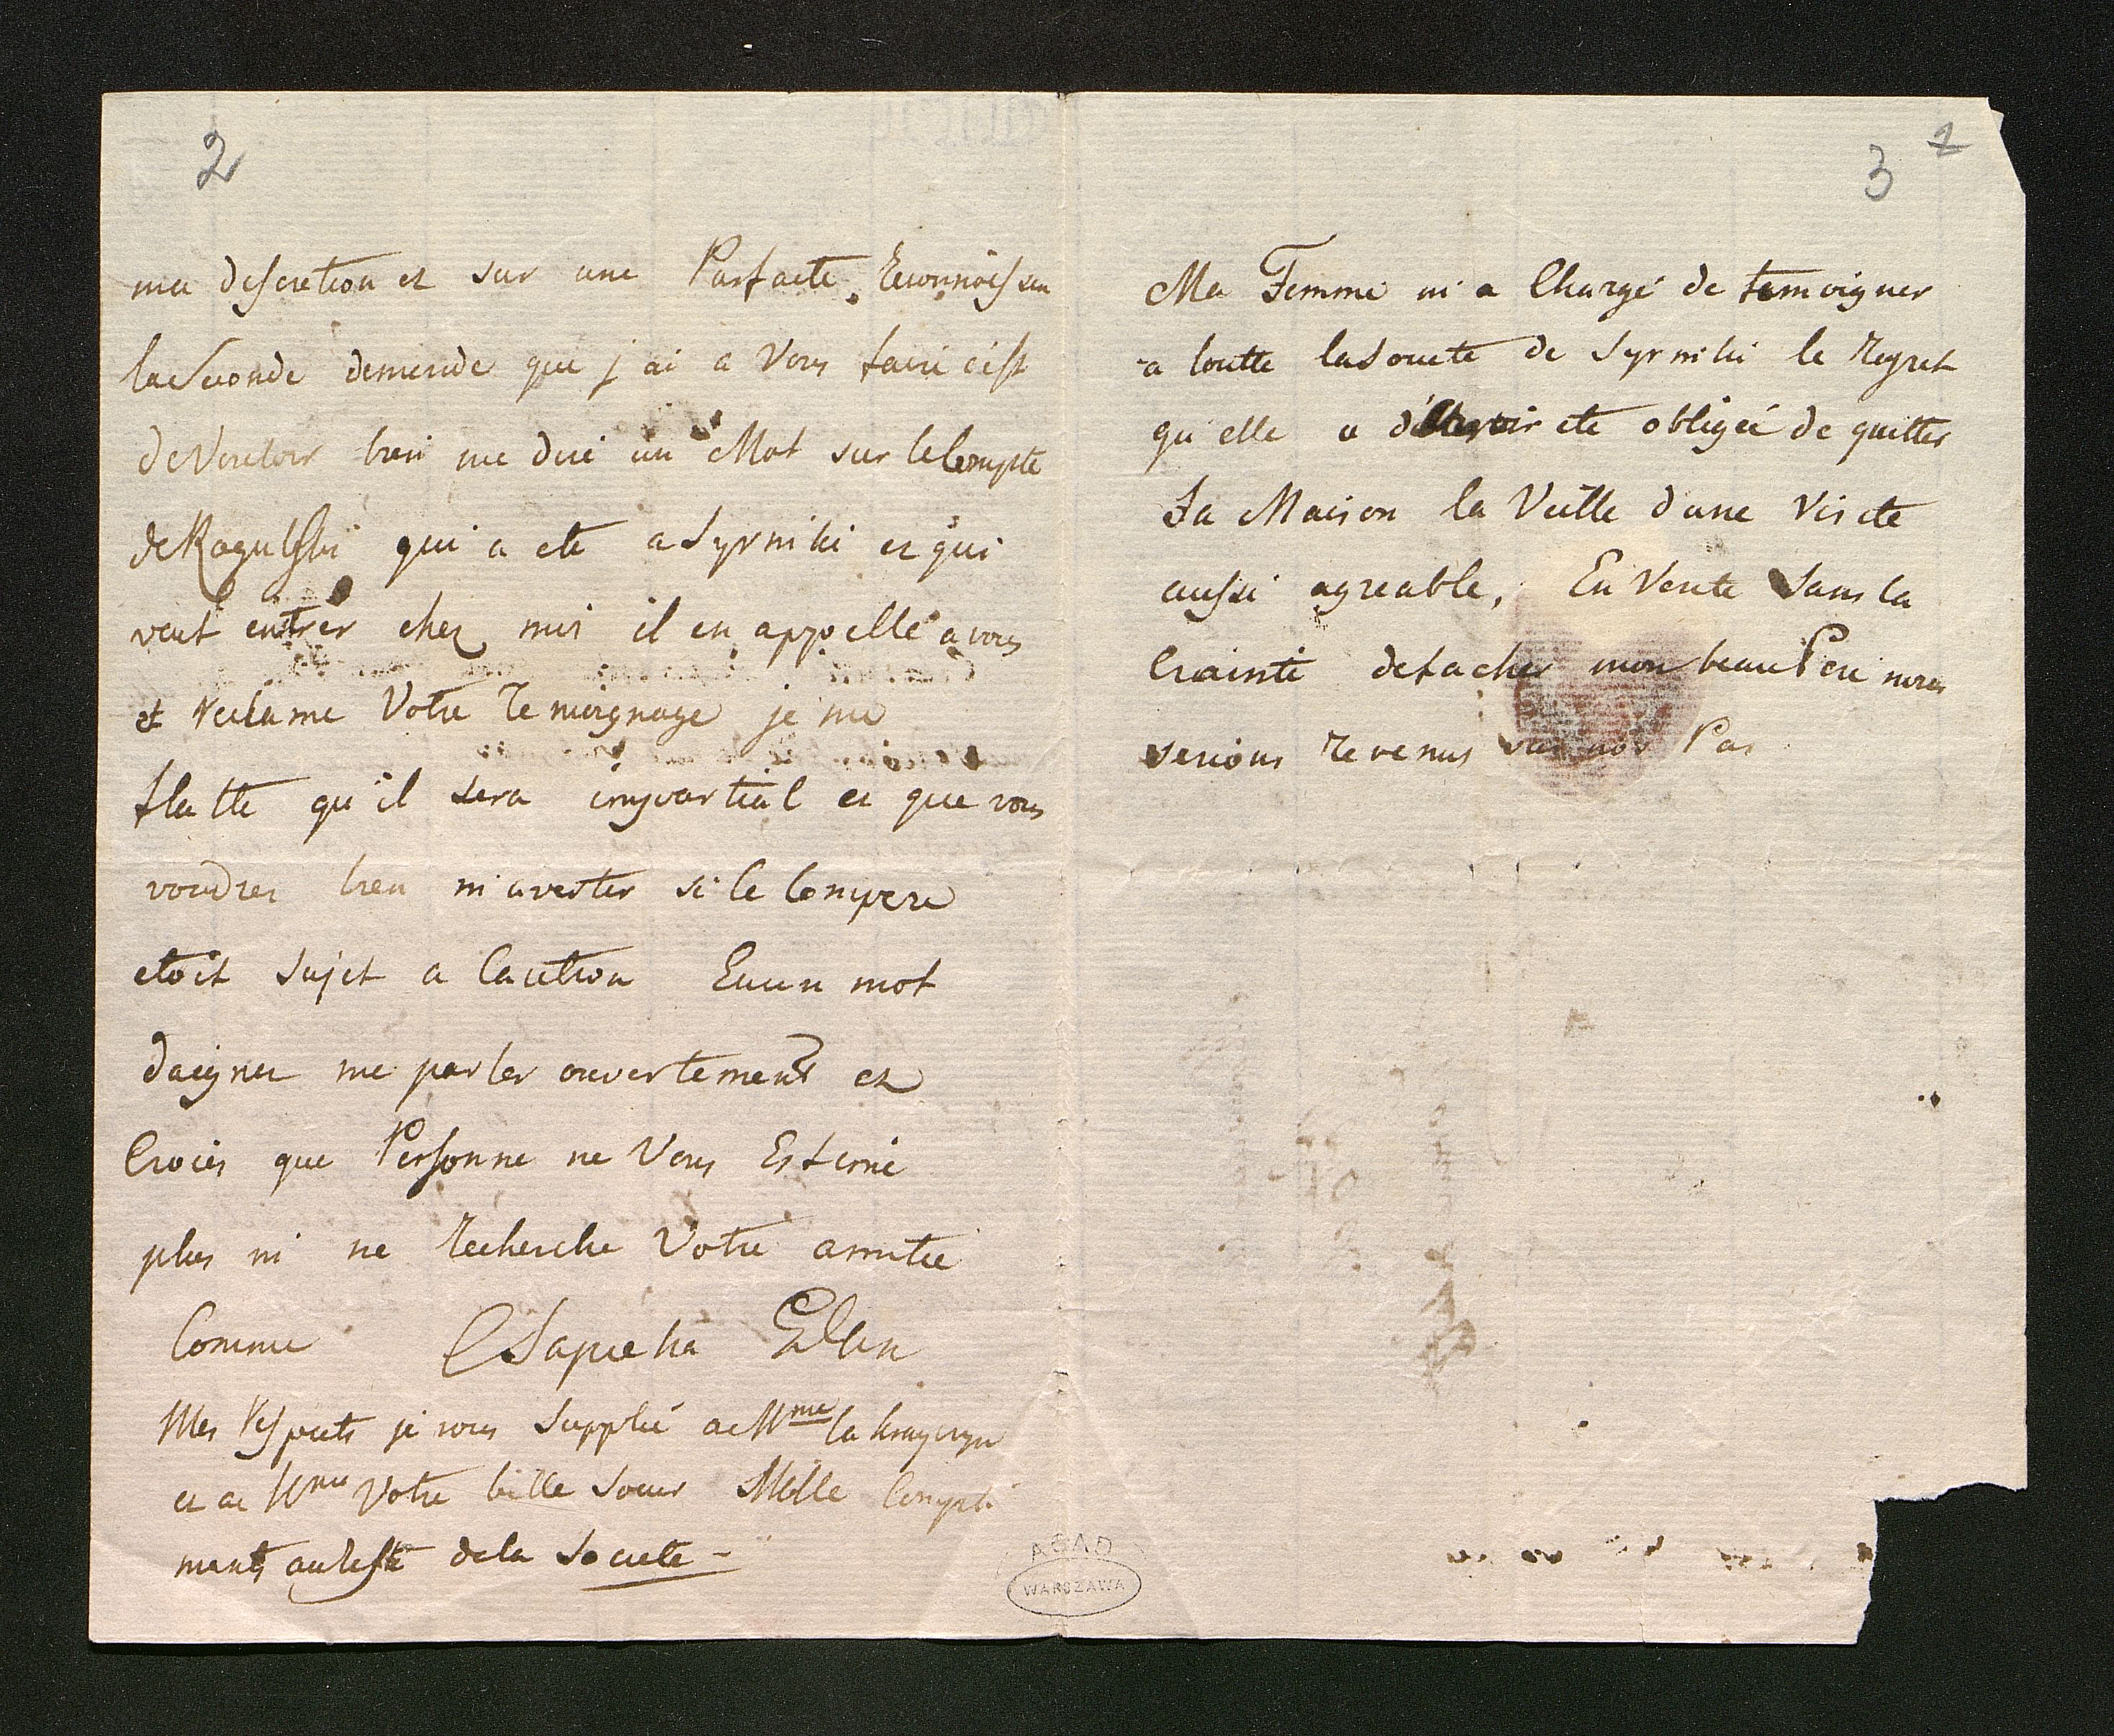 2
ma discretion et sur une Parfaite Reconnoissan
la Seconde demende que j'ai a Vous faire c'est
de Vouloir bien me dire un Mot sur le Compte
de Rogulski qui a eté a Syrniki et qui
veut entrer chez moi il en appelle a vous
et reclame Votre Temoignage je me
flatte qu'il sera impartial et que vous
voudrez bien m'avertir si le Compere
etoit Sujet a Caution En un mot
daignez me parler ouvertement et
Croiés que Personne ne Vous Estime
plus ni ne recherche Votre amitié
Comme Sapieha
Mes respects je vous Supplie a Mme la
et a Mme Votre belle Soeur Mille Compli
ments au reste de la Societe -
3 2
Ma Femme m'a Chargé de temoigner
a toutte la Societe de Syrniki le Regret
qu'elle a d'avoir ete obligeé de quitter
Sa Maison la Veille d'une Visite
aussi agreable, En Verite Sans la
Crainte de facher mon beau Pere nous
serions revenus sur nos Pas
AGAD
WARSZAWA